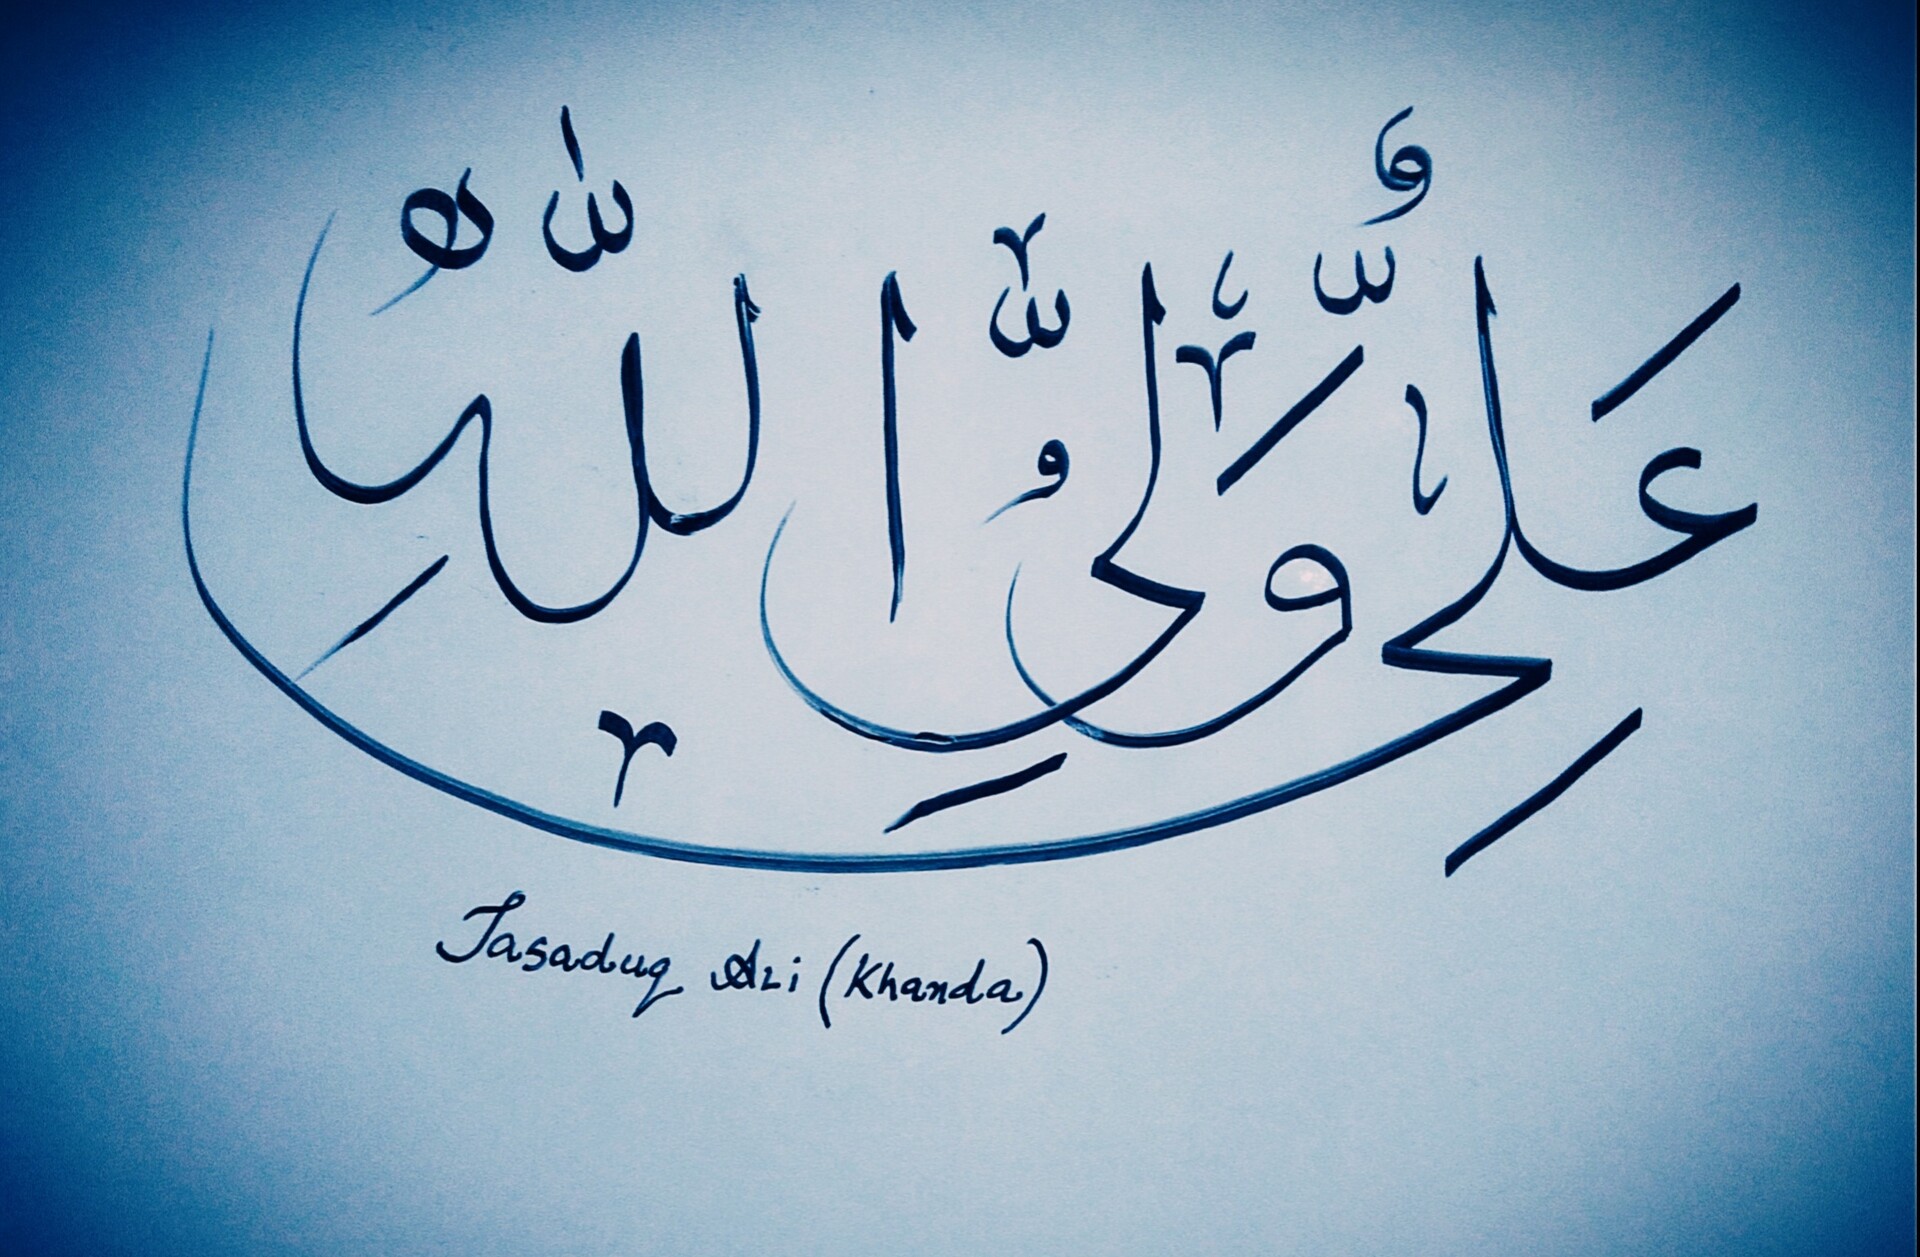 عَلِیٌّ وَّلِیُّ اللّٰهِ
Tasaduq Ali (Khanda)